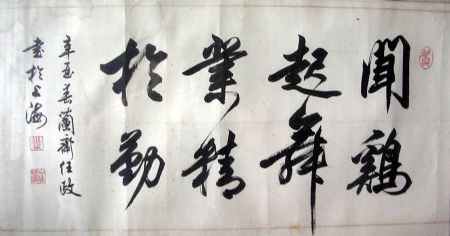 聞鷄
起舞
業精
於勤
辛酉春蘭齋任政
書於上海